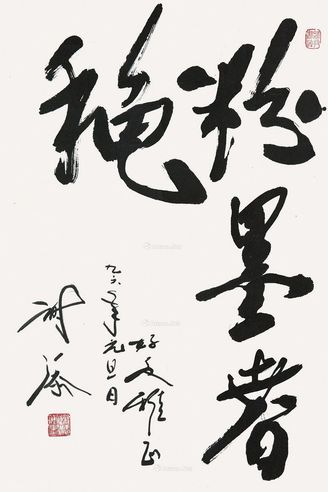 粉墨春
穐
好友雅正
九六年元旦日
谢添